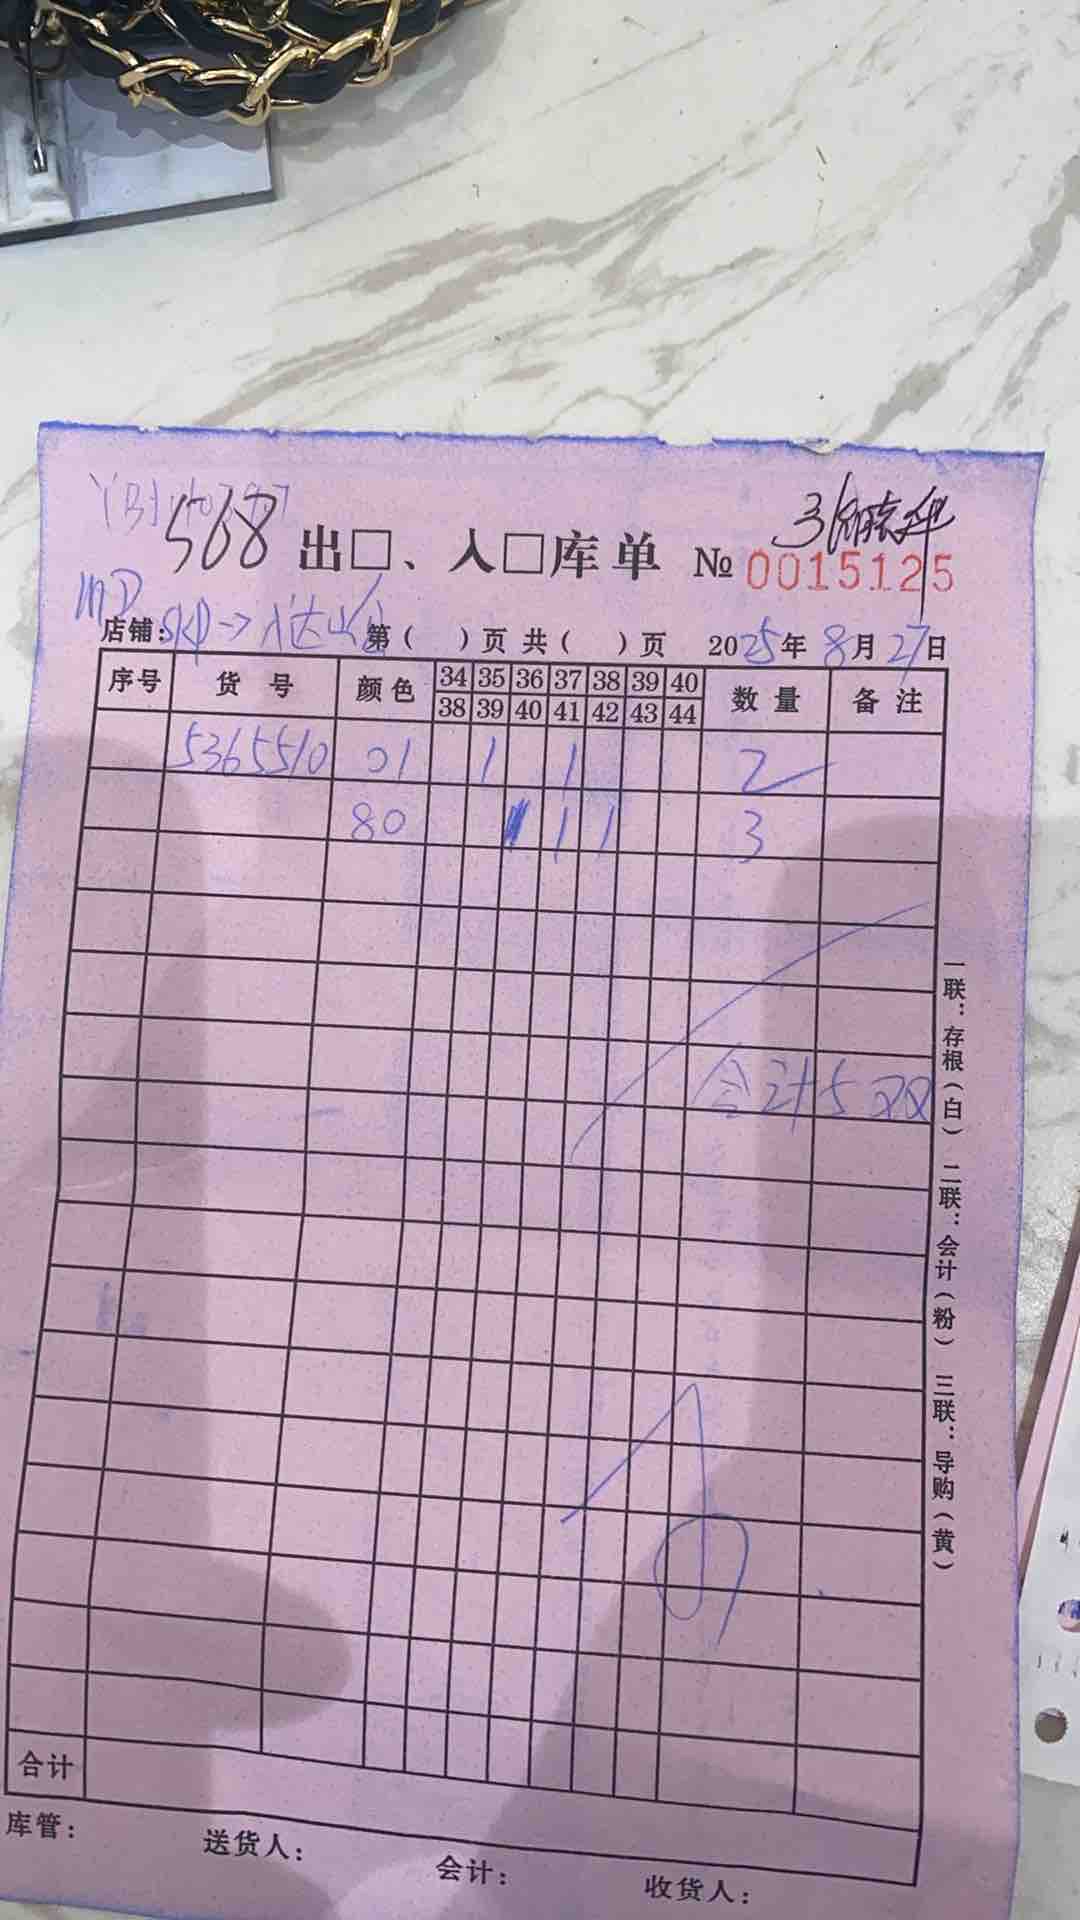 568
出□、入□库单 № 0015125
店铺：SKP→ 第（ ）页 共（ ）页 2025年8月27日
序号 货号 颜色 34 35 36 37 38 39 40 数量 备注
38 39 40 41 42 43 44
5365510 01 1 1 2
80 1 1 1 3
合计5双
合计
库管： 送货人： 会计： 收货人：
一联：存根（白） 二联：会计（粉） 三联：导购（黄）